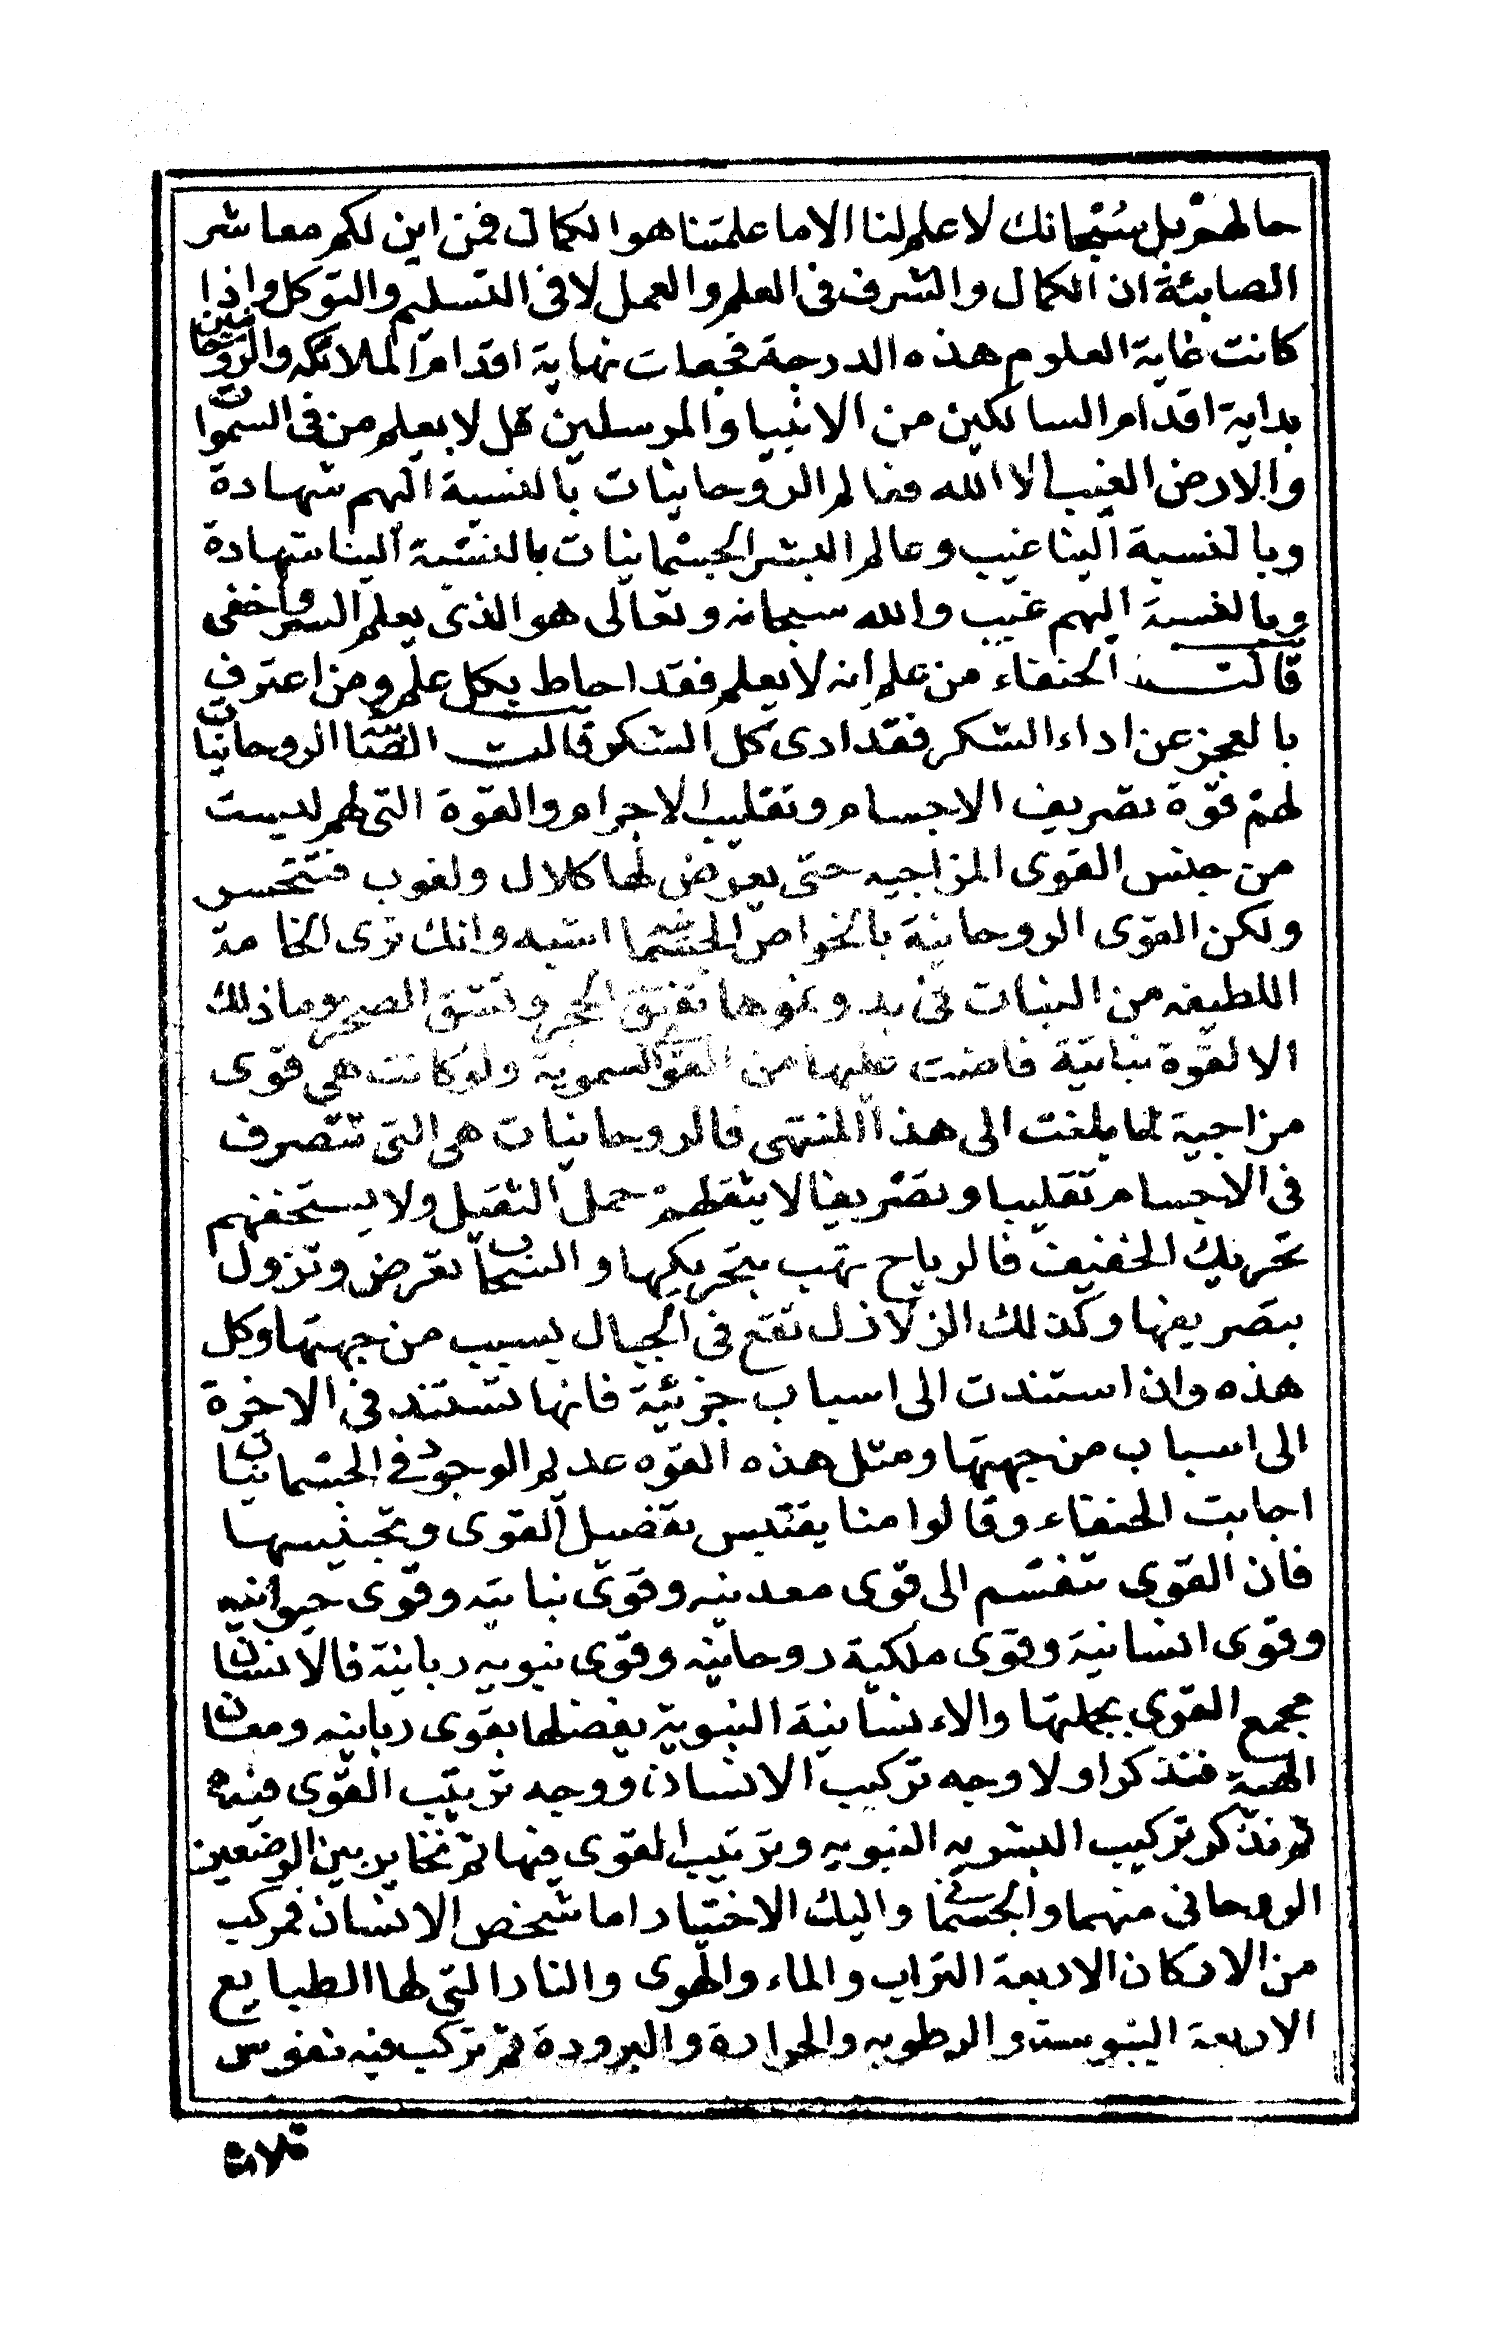 حالهم بل سبحانك لا علم لنا الا ما علمتنا هو الكمال فمن اين لكم معاشر
الصابئة ان الكمال والشرف فى العلم والعمل لا فى التسليم والتوكل واذا
كانت غاية العلوم هذه الدرجة فجعلت نهاية اقدام الملائكه والروحانيين
بداية اقدام السالكين من الانبيا والمرسلين قل لا يعلم من فى السموات
والارض الغيب الا الله فعالم الروحانيات بالنسبة اليهم شهادة
وبالنسبة الينا غيب وعالم البشر الجسمانيات بالنسبة الينا شهادة
وبالنسبة اليهم غيب والله سبحانه وتعالى هو الذى يعلم السر واخفى
قالت الحنفاء من علم انه لا يعلم فقد احاط بكل علم ومن اعترف
بالعجز عن اداء الشكر فقد ادى كل الشكر قالت الصابئة الروحانيات
لهم قوة تصريف الاجسام وتقليب الاجرام والقوة التى لهم ليست
من جنس القوى المزاجيه حتى يعرض لها كلال ولغوب فتنحسر
ولكن القوى الروحانية بالخواص الجسمانية اشبه وانك ترى الخامة
اللطيفه من النبات فى بدو نموها تفتق الحجر وتشق الصخر وما ذلك
الا لقوة نباتية فاضت عليها من القوى السموية ولو كانت هى قوى
مزاجية لما بلغت الى هذا المنتهى فالروحانيات هى التى تتصرف
فى الاجسام تقليبا وتصريفا لا يثقلهم حمل الثقيل ولا يستخفهم
تحريك الخفيف فالرياح تهب بتحريكها والسحاب تعرض وتزول
بتصريفها وكذلك الزلازل تقع فى الجبال بسبب من جهتها وكل
هذه وان استندت الى اسباب جزئية فانها تستند فى الاخرة
الى اسباب من جهتها ومثل هذه القوه عديم الوجود فى الجسمانيات
اجابت الحنفاء وقالوا منا يقتبس تفضيل القوى وتجنيسها
فان القوى تنقسم الى قوى معدنيه وقوى نباتيه وقوى حيوانيه
وقوى انسانية وقوى ملكية روحانيه وقوى نبويه ربانية فالانسان
مجمع القوى بجملتها والاءنسانية النبوية يفضلها بقوى ربانيه ومعان
الهية فنذكر اولا وجه تركيب الانسان ووجه ترتيب القوى فيه
ثم نذكر تركيب البشريه النبويه وترتيب القوى فيها ثم نخاير بين الوضعين
الروحانى منهما والجسمانى واليك الاختيار اما شخص الانسان فمركب
من الاركان الاربعة التراب والماء والهوى والنار التى لها الطبايع
الاربعة اليبوسة والرطوبه والحرارة والبرودة ثم تركب فيه نفوس
ثلاث